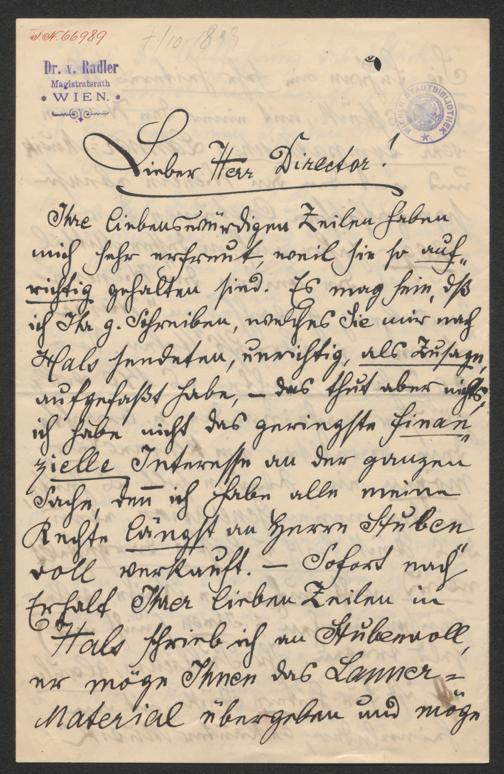 J.N. 66989
7/10. 1899
Dr. v. Radler
Magistratsrath
WIEN.
WIENER STADTBIBLIOTHEK
Lieber Herr Director!
Ihre liebenswürdigen Zeilen haben
mich sehr erfreut, weil sie so auf-
richtig gehalten sind. Es mag sein, dß
ich Ihr g. Schreiben, welches Sie mir nach
Hals sendeten, unrichtig, als Zusage,
aufgefaßt habe, – das thut aber nichts,
ich habe nicht das geringste finan-
zielle Interesse an der ganzen
Sache, den̄ ich habe alle meine
Rechte längst an Herrn Stuben
voll verkauft. – Sofort nach
Erhalt Ihrer lieben Zeilen in
Hals schrieb ich an Stubenvoll,
er möge Ihnen das Lanner-
Material übergeben und möge